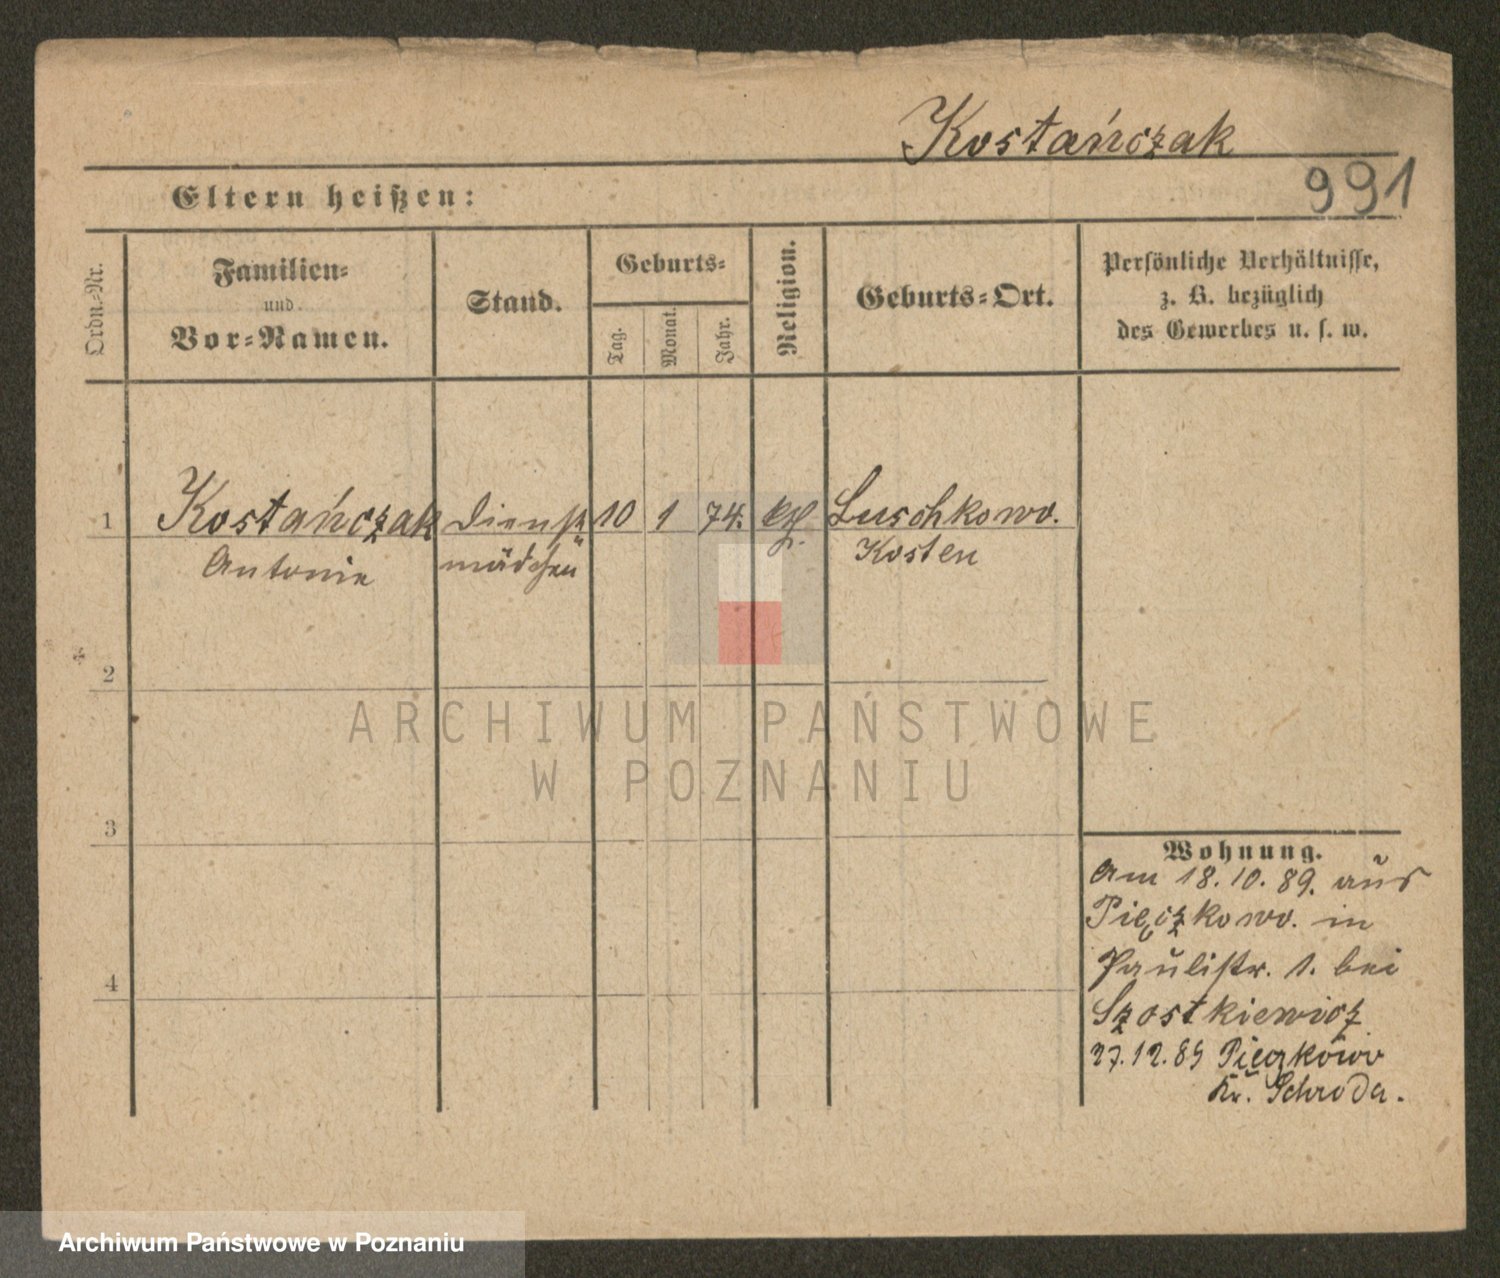 Kostańczak
991
Eltern heißen:
Ordn.-Nr.
Familien-
und
Vor-Namen.
Stand.
Geburts-
Tag.
Monat.
Jahr.
Religion.
Geburts-Ort.
Persönliche Verhältnisse,
z. B. bezüglich
des Gewerbes u. s. w.
1 Kostańczak Dienst 10 1 74. kth. Luschkowo.
Antonie mädchen Kosten
2
3
4
Wohnung.
Am 18.10.89. aus
Pięczkowo. in
Paulistr. 1. bei
Szostkiewicz
27.12.89 Pięczkowo
Kr. Schroda.
ARCHIWUM PAŃSTWOWE
W POZNANIU
Archiwum Państwowe w Poznaniu